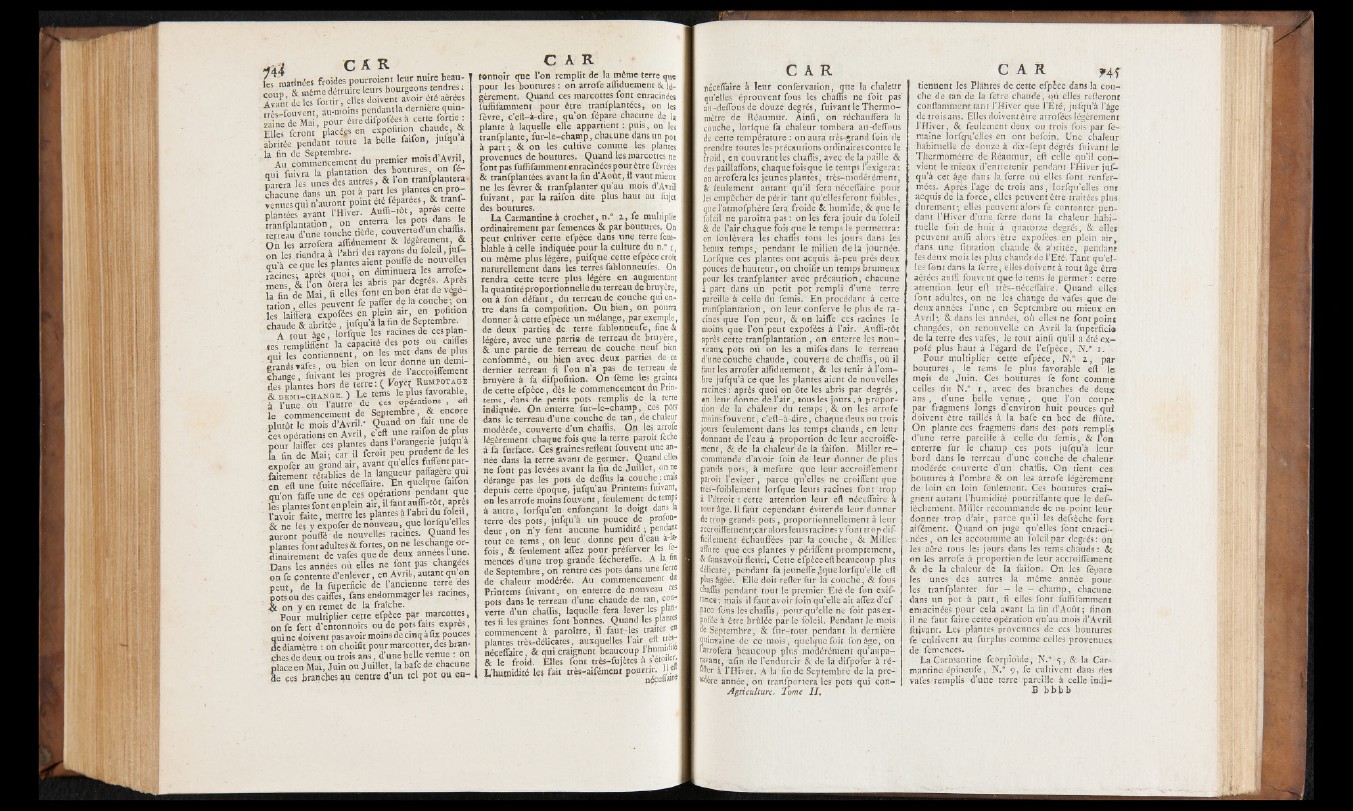 744
CAR
les matinées froides pourroient leur nuire beau-
coup, & même détruire leurs bourgeons tendres :
Avant de les sortir, elles doivent avoir été aérées
très-souvent, au-moins pendant la dernière quin-
zaine de Mai, pour être disposées à cette sortie :
Elles seront placées en exposition chaude, &
abritée pendant toute la belle saison, jusqu'à
la fin de Septembre.
Au commencement du premier mois d'Avril,
qui suivra la plantation des boutures, on sé-
parera les unes des autres, & l'on transplantera
chacune dans un pot à part les plantes en pro-
venues qui n'auront point été séparées, & trans-
plantées avant l'Hiver. Aussi-tôt, après cette
transplantation, on enterra les pots dans le
terreau d'une couche tiède, couverte d'un chassis.
On les arrosera assiduement & légèrement, &
on les tiendra à l'abri des rayons du soleil, jus-
qu'à ce que les plantes aient poussé de nouvelles
racines; après quoi, on diminuera les arrose-
mens, & l'on ôtera les abris par degrés. Après
la fin de Mai, si elles sont en bon état de végé-
tation, elles peuvent se passer de la couche; on
les laissera exposées en plein air, en position
chaude & abritée, jusqu'à la fin de Septembre.
A tout âge, lorsque les racines de ces plan-
tes remplissent la capacité des pots ou caisses
qui les contiennent, on les met dans de plus
grands vases, ou bien on leur donne un demi-
change, suivant les progrès de l'accroissement
des plantes hors de terre : ( Voyez RUMPOTAGE
& DEMI-CHANGE. ) Le tems le plus favorable,
à l'une ou l'autre de ces opérations, est
le commencement de Septembre, & encore
plutôt le mois d'Avril. Quand on fait une de
ces opérations en Avril, c'est une raison de plus
pour laisser ces plantes dans l'orangerie jusqu'à
la fin de Mai; car il seroit peu prudent de les
exposer au grand air, avant qu'elles fussent par-
faitement rétablies de la langueur passagère qui
en est une suite nécessaire. En quelque saison
qu'on fasse une de ces opérations pendant que
les plantes sont en plein air, il faut aussi-tôt, après
l'avoir faite, mettre les plantes à l'abri du soleil,
& ne les y exposer de nouveau, que lorsqu'elles
auront poussé de nouvelles racines. Quand les
plantes sont adultes & fortes, on ne les change or-
dinairement de vases que de deux années l'une.
Dans les années où elles ne sont pas changées
on se contente d'enlever, en Avril, autant qu'on
peut, de la superficie de l'ancienne terre des
pots ou des caisses, sans endommager les racines,
& on y en remet de la fraîche.
Pour multiplier cette espèce par marcottes,
on se sert d'entonnoirs ou de pots faits exprès,
qui ne doivent pas avoir moins de cinq à six pouces
de diamètre : on choisit pour marcotter, des bran-
ches de deux ou trois ans, d'une belle venue : on
place en Mai, Juin ou Juillet, la base de chacune
de ces branches au centre d'un tel pot ou en-
CAR
tonnoir que l'on remplit de la même terre que
pour les boutures : on arrose assiduement & lé-
gèrement. Quand ces marcottes sont enracinées
suffisamment pour être transplantées, on les
sèvre, c'est-à-dire, qu'on sépare chacune de la
plante à laquelle elle appartient : puis, on les
transplante, sur-le-champ, chacune dans un pot
à part; & on les cultive comme les plantes
provenues de boutures. Quand les marcottes ne
sont pas suffisamment enracinées pour être sévrées
& transplantées avant la fin d'Août, il vaut mieux
ne les sévrer & transplanter qu'au mois d'Avril
suivant, par la raison dite plus haut au sujet
des boutures.
La Carmantine à crochet, n.° 2, se multiplie
ordinairement par semences & par boutures. On
peut cultiver cette espèce dans une terre sem-
blable à celle indiquée pour la culture du n.° 1,
ou même plus légère, puisque cette espèce croît
naturellement dans les terres sablonneuses. On
rendra cette terre plus légère en augmentant
la quantité proportionnelle du terreau de bruyère,
ou à son défaut, du terreau de couche qui en-
tre dans sa composition. Ou bien, on pourra
donner à cette espèce un mélange, par exemple,
de deux parties de terre sablonneuse, fine &
légère, avec une partie de terreau de bruyère,
& une partie de terreau de couche neuf bien
consommé, ou bien avec deux parties de ce
dernier terreau si l'on n'a pas de terreau de
bruyère à sa disposition. On sème les graines
de cette espèce, dès le commencement du Prin-
tems, dans de petits pots remplis de la terre
indiquée. On enterre, sur-le-champ, ces pots
dans le terreau d'une couche de tan, de chaleur
modérée, couverte d'un chassis. On les arrose
légèrement chaque fois que la terre paroît sèche
à sa surface. Ces graines restent souvent une an-
née dans la terre avant de germer. Quand elles
ne sont pas levées avant la fin de Juillet, on ne
dérange pas les pots de dessus la couche : mais
depuis cette époque, jusqu'au Printems suivant,
on les arrose moins souvent, seulement de temps
à autre, lorsqu'en enfonçant le doigt dans la
terre des pots, jusqu'à un pouce de profon-
deur, on n'y sent aucune humidité; pendant
tout ce tems, on leur donne peu d'eau à-la-
fois, & seulement assez pour préserver les se-
mences d'une trop grande sécheresse. A la fin
de Septembre, on rentre ces pots dans une serre
de chaleur modérée. Au commencement du
Printems suivant, on enterre de nouveau ces
pots dans le terreau d'une chaude de tan, cou-
verte d'un chassis, laquelle fera lever les plan-
tes si les graines sont bonnes. Quand les plantes
commencent à paroître, il faut les traiter en
plantes très-délicates, auxquelles l'air est très-
nécessaire, & qui craignent beaucoup l'humidité
& le froid. Elles sont très-sujètes à s'étioler.
L'humidité les fait très-aisément pourrir. Il est
nécessaire
CAR
nécessaire à leur conservation, que la chaleur
qu'elles éprouvent sous les chassis ne soit pas
au-dessous de douze degrés, suivant le Thermo-
mètre de Réaumur. Ainsi, on réchauffera la
couche, lorsque sa chaleur tombera au-dessous
de cette température : on aura très-grand soin de
prendre toutes les précautions ordinaires contre le
froid, en couvrant les chassis, avec de la paille &
des paillassons, chaque fois que le temps l'exigera :
on arrosera les jeunes plantes, très-modérément,
& seulement autant qu'il sera nécessaire pour
les empêcher de périr tant qu'elles seront foibles,
que l'atmosphère sera froide & humide, & que le
soleil ne paroîtra pas : on les fera jouir du soleil
& de l'air chaque fois que le temps le permettra :
on soulèvera les chassis tous les jours dans les
beaux temps, pendant le milieu de la journée.
Lorsque ces plantes ont acquis à-peu près deux
pouces de hauteur, on choisit un temps brumeux
pour les transplanter avec précaution, chacune
à part dans un petit pot rempli d'une terre
pareille à celle du semis. En procédant à cette
transplantation, on leur conserve le plus de ra-
cines que l'on peut, & on laisse ces racines le
moins que l'on peut exposées à l'air. Aussi-tôt
après cette transplantation, on enterre les nou-
veaux pots où on les a mises dans le terreau
d'une couche chaude, couverte de chassis, où il
faut les arroser assiduement, & les tenir à l'om-
bre jusqu'à ce que les plantes aient de nouvelles
racines : après quoi on ôte les abris par degrés,
on leur donne de l'air, tous les jours, à propor-
tion de la chaleur du temps, & on les arrose
moins souvent, c'est-à-dire, chaque deux ou trois
jours seulement dans les temps chauds, en leur
donnant de l'eau à proportion de leur accroisse-
ment, & de la chaleur de la saison. Miller re-
commande d'avoir soin de leur donner de plus
grands pots, à mesure que leur accroissement
paroît l'exiger, parce qu'elles ne croissent que
très-foiblement lorsque leurs racines sont trop
à l'étroit : cette attention leur est nécessaire à
tout âge. Il faut cependant éviter de leur donner
de trop grands pots, proportionnellement à leur
accroissement, car alors leurs racines y sont trop dif-
ficilement échauffées par la couche, & Miller
assure que ces plantes y périssent promptement,
& sans avoir fleuri. Cette espèce est beaucoup plus
délicate, pendant sa jeunesse, que lorsqu'elle est
plus âgée. Elle doit rester sur la couche, & sous
chassis pendant tout le premier Eté de son exis-
tance : mais il faut avoir soin qu'elle ait assez d'es-
pace sous les chassis, pour qu'elle ne soit pas ex-
posée à être brûlée par le soleil. Pendant le mois
de Septembre, & sur-tout pendant la dernière
quinzaine de ce mois, quelque soit son âge, on
l'arrosera beaucoup plus modérément qu'aupa-
ravant, afin de l'endurcir & de la disposer à ré-
sister à l'Hiver. A la fin de Septembre de la pre-
mière année, on transportera les pots qui con-
Agriculture. Tome II.
CAR
745
tiennent les Plantes de cette espèce dans la cou-
che de tan de la serre chaude, où elles resteront
constamment tant l'Hiver que l'Eté, jusqu'à l'âge
de trois ans. Elles doivent être arrosées légèrement
l'Hiver, & seulement deux ou trois fois par se-
maine lorsqu'elles en ont besoin. Une chaleur
habituelle de douze à dix-sept degrés suivant le
Thermomètre de Réaumur, est celle qu'il con-
vient le mieux d'entretenir pendant l'Hiver jus-
qu'à cet âge dans la serre où elles sont renfer-
mées. Après l'âge de trois ans, lorsqu'elles ont
acquis de la force, elles peuvent être traitées plus
durement; elles peuvent alors se contenter pen-
dant l'Hiver d'une serre dont la chaleur habi-
tuelle soit de huit à quatorze degrés, & elles
peuvent aussi alors être exposées en plein air,
dans une situation chaude & abritée, pendant
les deux mois les plus chauds de l'Eté. Tant qu'el-
les sont dans la serre, elles doivent à tout âge être
aérées aussi souvent que le tems le permet : cette
attention leur est très-nécessaire. Quand elles
sont adultes, on ne les change de vases que de
deux années l'une, en Septembre ou mieux en
Avril; & dans les années, où elles ne sont point
changées, on renouvelle en Avril la superficie
de la terre des vases, le tout ainsi qu'il a été ex-
posé plus haut à l'égard de l'espèce, N.° 1.
Pour multiplier cette espèce, N.° 2, par
boutures, le tems le plus favorable est le
mois de Juin. Ces boutures se font comme
celles du N.° 1, avec des branches de deux
ans, d'une belle venue, que l'on coupe
par fragmens longs d'environ huit pouces qui
doivent être taillés à la base en bec de flûte.
On plante ces fragmens dans des pots remplis
d'une terre pareille à celle du semis, & l'on
enterre sur le champ ces pots jusqu'à leur
bord dans le terreau d'une couche de chaleur
modérée couverte d'un chassis. On tient ces
boutures à l'ombre & on les arrose légèrement
de loin en loin seulement. Ces boutures crai-
gnent autant l'humidité pourrissante que le des-
sèchement. Miller recommande de ne point leur
donner trop d'air, parce qu'il les dessèche fort
aisément. Quand on juge qu'elles sont enraci-
nées, on les accoutume au soleil par degrés : on
les aère tous les jours dans les tems chauds : &
on les arrose à proportion de leur accroissement
& de la chaleur de la saison. On les sépare
les unes des autres la même année pour
les transplanter sur - le - champ, chacune
dans un pot à part, si elles sont suffisamment
enracinées pour cela avant la fin d'Août; sinon
il ne faut faire cette opération qu'au mois d'Avril
suivant. Les plantes provenues de ces boutures
se cultivent au surplus comme celles provenues
de semences.
La Carmantine scorpioïde, N.° 5, & la Car-
mantine épineuse, N.° 9, se cultivent dans des
vases remplis d'une terre pareille à celle indi-
B bbbb